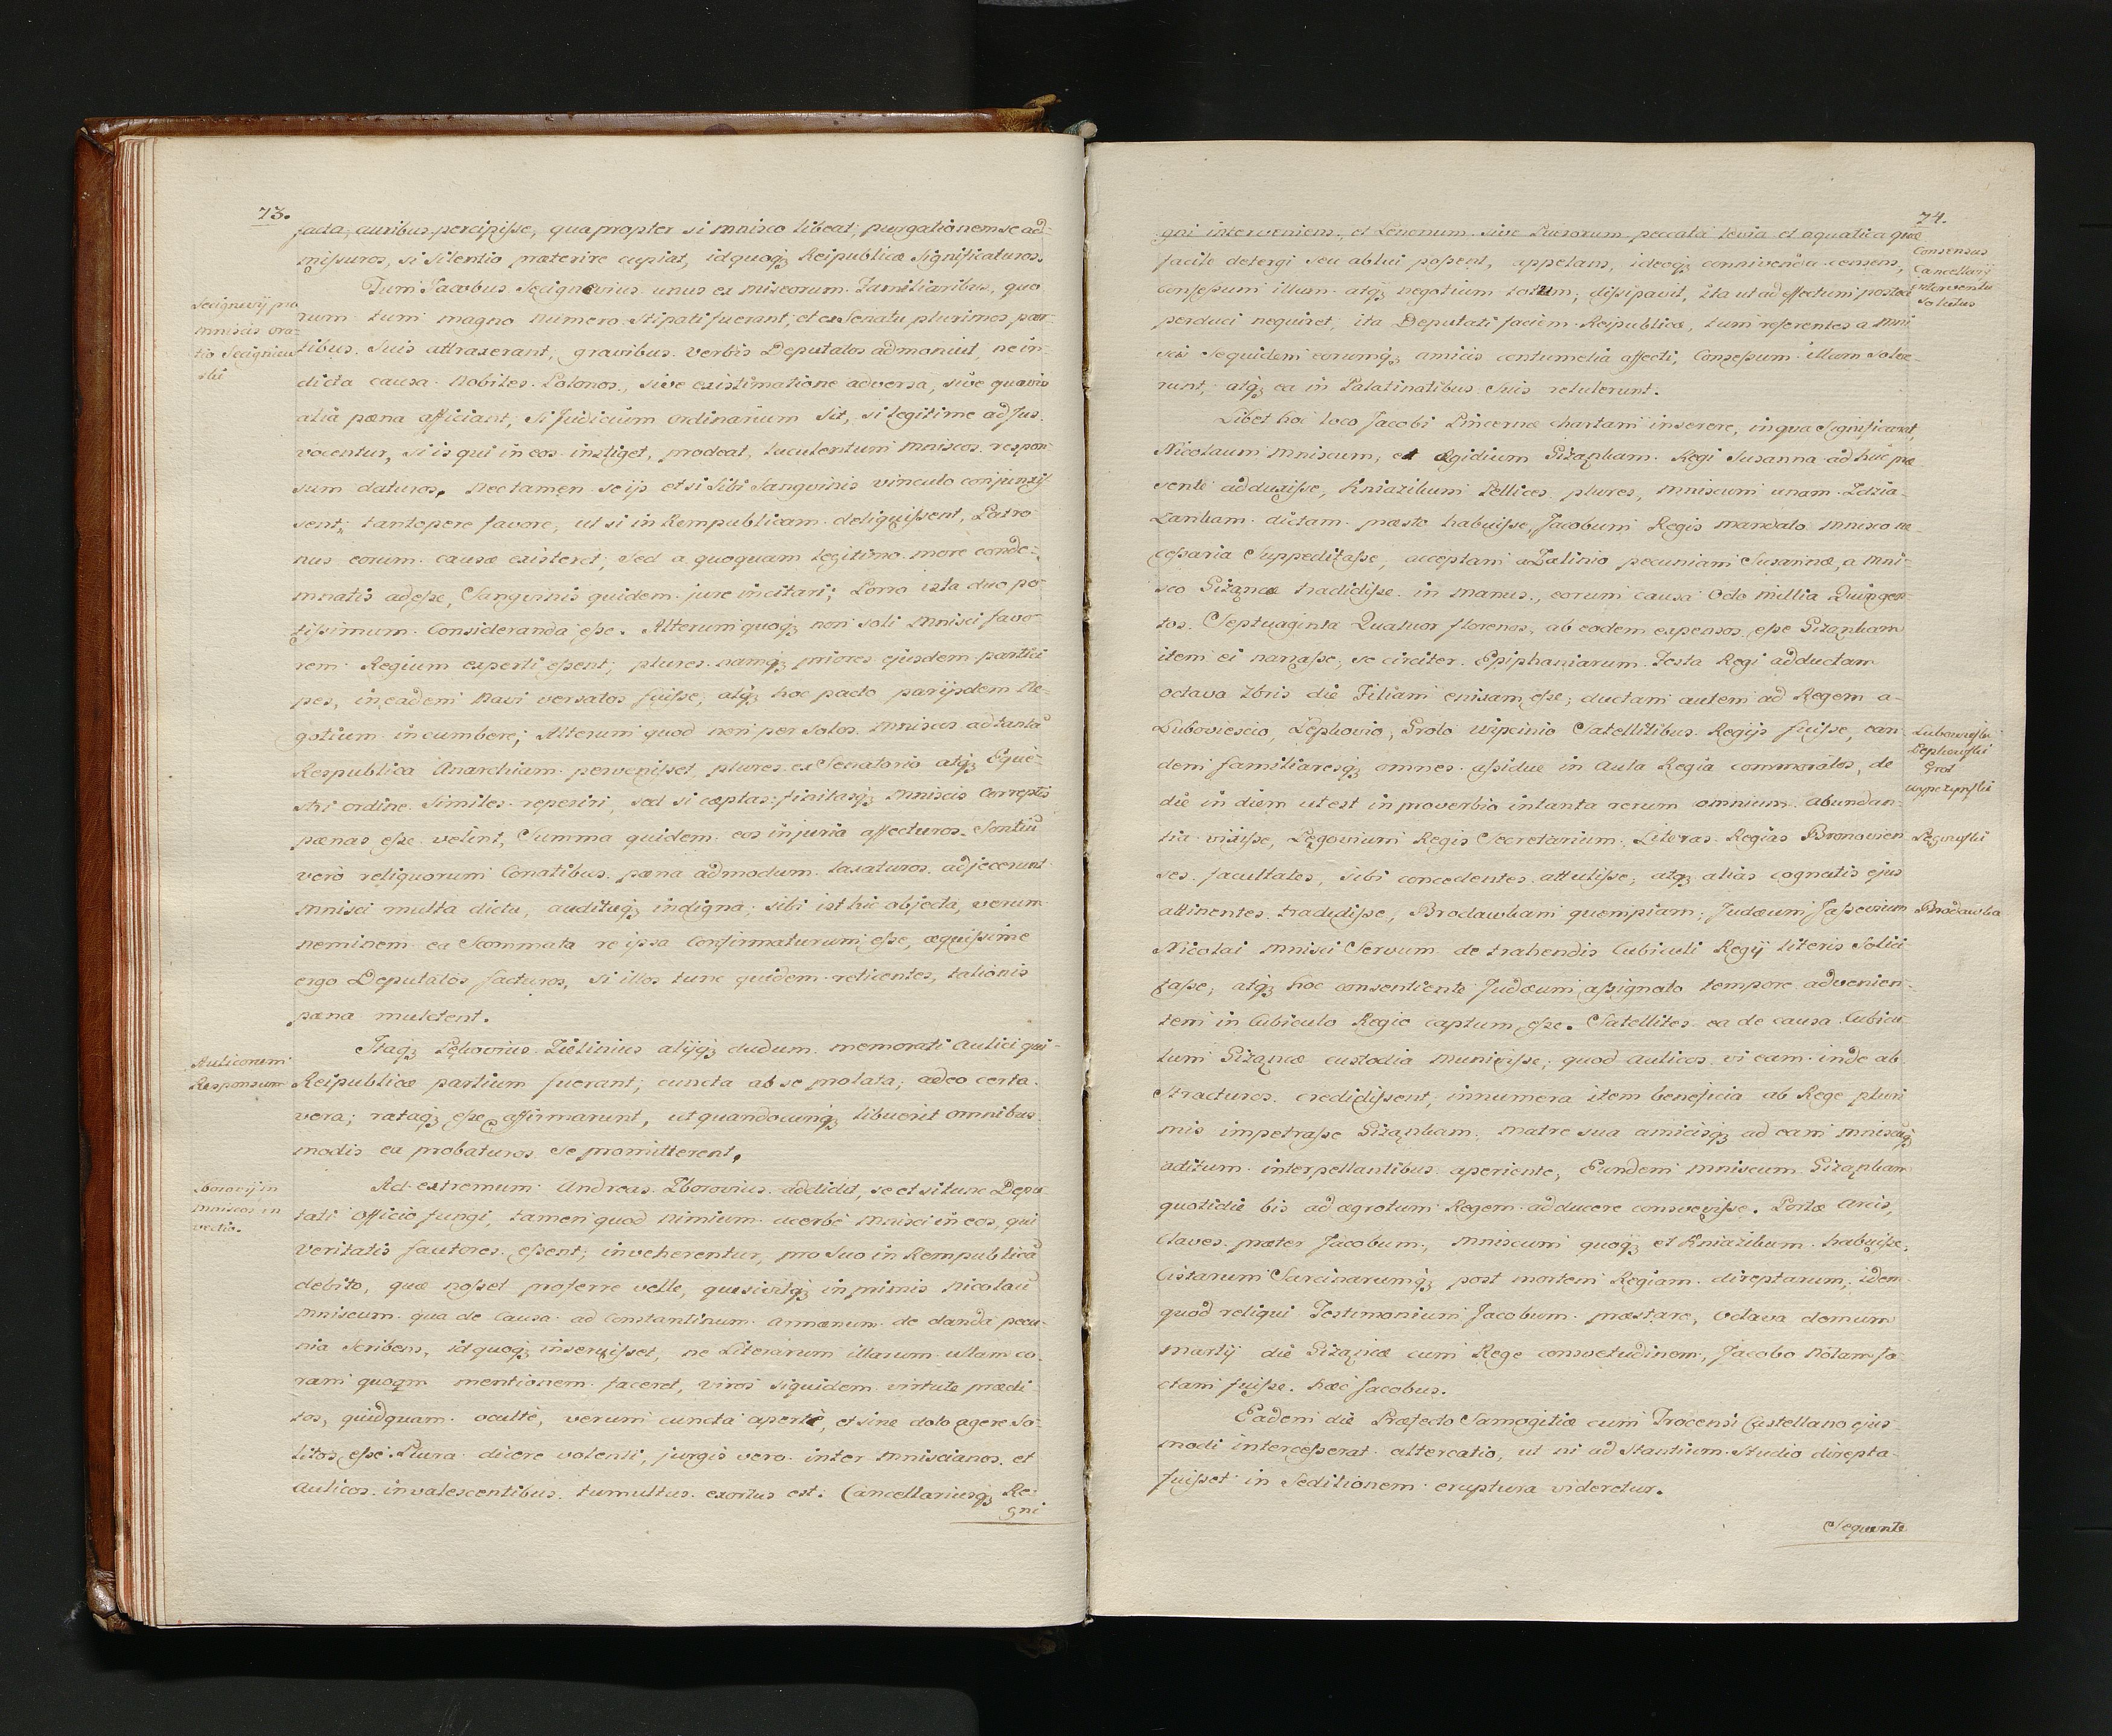 73.
facta, auribus percipisse, quapropter si Mnisco libeat, purgationem se ad-
missuros, si silentio præterire cupiat, id quoqȝ Reipublicæ significaturos.
Tum Jacobus Secignevius unus ex Miscorum Familiaribus, quo
rum tum magno numero stipati fuerant, et ex Senatu plurimos par-
tibus suis attraxerant, gravibus verbis Deputatos admonuit, ne in-
dicta causa Nobiles Polonos, sive existimatione adversa, sive quavis
alia pæna afficiant, si Judicium ordinarium sit, si legitime ad Jus
vocentur, si is qui in eos instiget, prodeat, luculentum Mniscos respon-
sum daturos, nec tamen se ijs etsi sibi Sangvinis vinculo conjunxis
sent, tantopere favore, ut si in Rempublicam deliquissent, Patro
nus eorum causæ existeret, sed a quoquam legitimo more conde-
mnatis adesse, Sangvinis quidem jure incitari; Porro ista duo po-
tissimum Consideranda esse. Alterum quoqȝ non soli Mnisci favo-
rem Regium experti essent; plures namqȝ priores ejusdem partici
pes, in eadem Navi versatos fuisse, atqȝ hoc pacto parijsdem Ne-
gotium incumbere; Alterum quod non per solos Mniscos ad tantā
Respublica Anarchiam pervenisset, plures ex Senatorio atqȝ Eque-
stri ordine similes reperiri, sed si cæptas finitasqȝ Mniscis correptis
pænas esse velint, Summa quidem eos injuria affecturos. Sontiū
verò reliquorum Conatibus pæna admodum laxaturos adjecerunt
Mnisci multa dictu, audituqȝ indigna, sibi isthic objecta, verum
neminem ea Scommata re ipsa Confirmaturum esse, æquissime
ergo Deputatos facturos, si illos tunc quidem reticentes, talionis
pæna mulctent.
Itaqȝ Lękovius Zielinius alijqȝ dudum memorati Aulici qui-
Reipublicæ partium fuerant, cuncta ab se prolata, adeo certa
vera, rataqȝ esse affirmarunt, ut quandocunqȝ libuerit omnibus
modis ea probaturos se promitterent.
Ad extremum Andreas Zborovius addidit, se etsi tunc Depu
tati Officio fungi, tamen quod nimium acerbè Mnisci in eos, qui
Veritatis fautores essent, inveherentur, pro suo in Rempublicā
debito, quæ nosset proferre velle, quæsivitqȝ in primis Nicolaū
Mniscum qua de causa ad Constantinum Annænum de danda pecu-
nia scribens, id quoqȝ inseruisset, ne Literarum illarum ullam co-
ram quoqm mentionem faceret, viros siquidem virtute prædi-
tos, quidquam occultè, verum cuncta apertè, et sine dolo agere so-
litos esse. Plura dicere volenti, jurgis vero inter Mniscianos et
Aulicos invalescentibus tumultus exortus est. Cancellariusqȝ Re-
gni
Secignevij pro
Mniscis ora-
tio Secigniew
ski
Aulicorum
Responsum
Zborovij in
Mniscos in
vectio.
74.
gni interveniens, et Lenonum sive Puerorum peccata levia et aquatica quæ
facile detergi seu ablui possent, appellans, ideoqȝ connivenda censens,
consessum illum atqȝ negotium totum, dissipavit, ita ut ad effectum postea
perduci nequiret, ita Deputati faciem Reipublicæ, tum referentes a Mni
scis sequidem eorumqȝ amicis contumelia affecti, Consessum illum solve-
runt, atqȝ ea in Palatinatibus suis retulerunt.
Libet hoc loco Jacobi Pincernæ chartam inserere, in qua significavit,
Nicolaum Mniscum, et Ægidium Gizankam Regi Susanna adhuc præ
sente adduxisse, Kniazikum Pellices plures, Mniscum unam Zdzia-
zankam dictam præsto habuisse, Jacobum Regis mandato Mnisco ne-
cessaria suppeditasse, acceptam a Zalinio pecuniam Susannæ, a Mni-
sco Gizancæ tradidisse in manus, eorum causa Octo millia Quingen
tos Septuaginta Quatuor florenos, ab eodem expensos esse Gizankam
item ei narrasse, se circiter Epiphaniarum Festa Regi adductam
octava Xbris die Filiam enixam esse, ductam autem ad Regem a-
Luboviescio, Lepkovio, Groto Wipcinio Satellitibus Regijs fuisse, ean-
dem familiaresqȝ omnes assidue in Aula Regia commorātos, de
die in diem ut est in proverbio in tanta rerum omnium abundan-
tia vixisse, Lęgovium Regis Secretarium, Literas Regias Bronovien
ses facultates, sibi concedentes attulisse, atqȝ alias cognatis ejus
attinentes tradidisse, Brodawkam quempiam, Judæum Jassevium
Nicolai Mnisci Servum de trahendis Cubiculi Regij literis solici-
tasse, atqȝ hoc consentiente Judæum assignato tempore advenien-
tem in Cubiculo Regio captum esse. Satellites ea de causa Cubicu-
lum Gizancæ custodia munivisse, quod Aulicos vi eam inde ab
stracturos credidissent, innumera item beneficia ab Rege pluri
mis impetrasse Gizankam, matre sua amicisqȝ ad eam Mniscoqȝ
aditum interpellantibus aperiente, Eundem Mniscum Gizankam
quotidie bis ad ægrotum Regem adducere consvevisse. Portæ Arcis,
claves præter Jacobum, Mniscum quoqȝ et Kniazikum habuisse,
Cistarum Sarcinarumqȝ post mortem Regiam direptarum, idem
quod reliqui Testimonium Jacobum præstare, octava demum
Martij die Gizancæ cum Rege consvetudinem, Jacobo Notam fa-
ctam fuisse. Hæc Jacobus.
Eadem die Præfecto Samogitiæ cum Trocensi Castellano ejus-
modi intercesserat altercatio, ut ni adstantium studio direpta
fuisset in Seditionem eruptura videretur.
Sequente
Consensus
Cancellarij
interventu
solutus
Lubowieski
Lepkowski
Grot
Wypczynski
Lęgowski
Brodawka